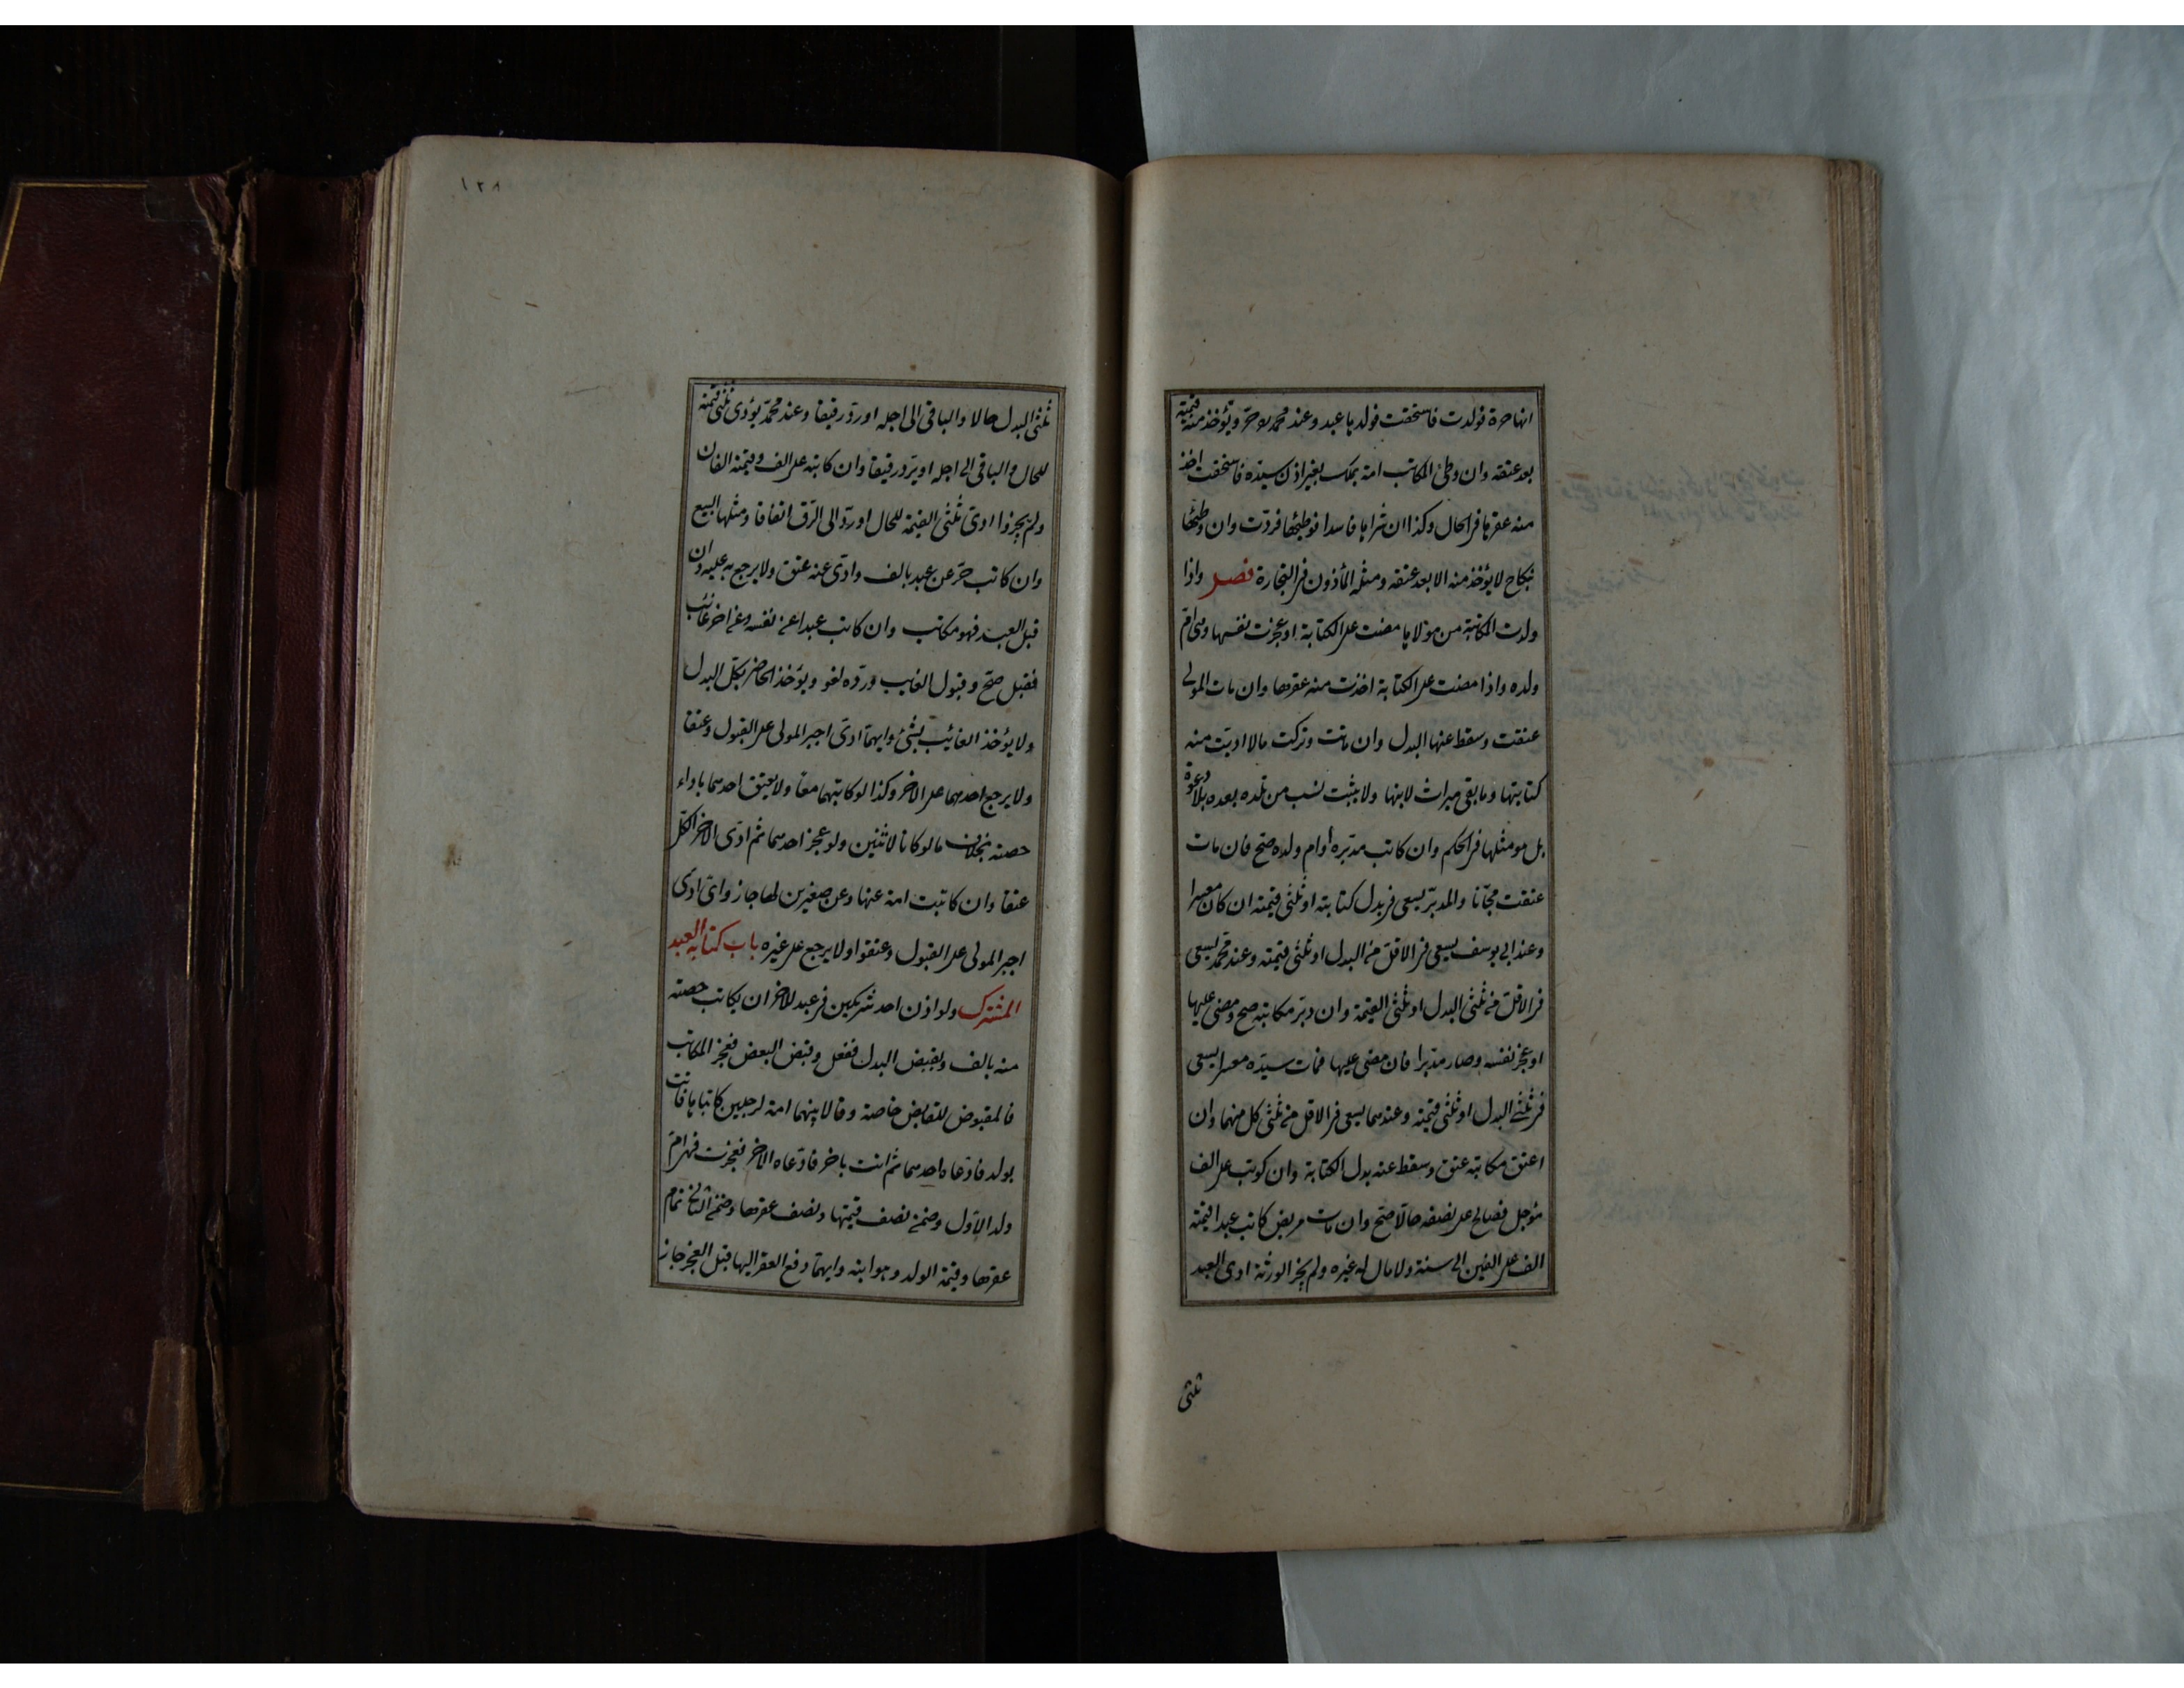 انها حرة فولدت فاستحقت فولدها عبد وعند محمد هو حر ويؤخذ منه قيمته
بعد عتقه وان وطئ المكاتب امة بملك بغير اذن سيده فاستحقت اخذ
منه عقرها فى الحال وكذا ان شراها فاسدا فوطئها فردت وان وطئها
بنكاح لا يؤخذ منه الا بعد عتقه ومثله المأذون فى التجارة فصل واذا
ولدت المكاتبة من مولاها مضت على الكتابة او عجزت نفسها وهى ام
ولده واذا مضت على الكتابة اخذت منه عقرها وان مات المولى
عتقت وسقط عنها البدل وان ماتت وتركت مالا اديت منه
كتابتها وما بقى ميراث لابنها ولا يثبت نسب من تلده بعده بلا دعوة
بل هو مثلها فى الحكم وان كاتب مدبره او ام ولده صح فان مات
عتقت مجانا والمدبر يسعى فى بدل كتابته او ثلثى قيمته ان كان معسرا
وعند ابى يوسف يسعى فى الاقل من البدل او ثلثى قيمته وعند محمد يسعى
فى الاقل من ثلثى البدل او ثلثى القيمة وان دبر مكاتبه صح ومضى عليها
او عجز نفسه وصار مدبرا فان مضى عليها فمات سيده معسرا يسعى
فى ثلثى البدل او ثلثى قيمته وعندهما يسعى فى الاقل من ثلثى كل منهما وان
اعتق مكاتبه عتق وسقط عنه بدل الكتابة وان كوتب على الف
مؤجل فصالح على نصفه حالا صح وان مات مريض كاتب عبدا قيمته
الف على الفين الى سنة ولا مال له غيره ولم يجز الورثة ادى العبد
ثلثى
١٢٨
ثلثى البدل حالا والباقى الى اجله او رد رقيقا وعند محمد يؤدى ثلثى قيمته
للحال والباقى الى اجله او يرد رقيقا وان كاتبه على الف وقيمته الفان
ولم يجيزوا ادى ثلثى القيمة للحال او رد الى الرق اتفاقا ومثلها البيع
وان كاتب حر عن عبد بالف وادى عنه عتق ولا يرجع به عليه وان
قبل العبد فهو مكاتب وان كاتب عبدا عن نفسه وعن اخر غائب
فقبل صح وقبول الغايب ورده لغو ويؤخذ الحاضر بكل البدل
ولا يؤخذ الغائب بشئ وايهما ادى اجبر المولى على القبول وعتقا
ولا يرجع احدهما على الاخر وكذا لو كاتبهما معا ولا يعتق احدهما باداء
حصته بخلاف ما لو كانا لاثنين ولو عجز احدهما ثم ادى الاخر الكل
عتقا وان كاتبت امة عنها وعن صغيرين لها جاز واى ادى
اجبر المولى على القبول وعتقوا ولا يرجع على غيره باب كتابة العبد
المشترك ولو اذن احد شريكين فى عبد للاخر ان يكاتب حصته
منه بالف ويقبض البدل ففعل وقبض البعض فعجز المكاتب
فالمقبوض للقابض خاصة وقالا بينهما امة لرجلين كاتباها فاتت
بولد فادعاه احدهما ثم اتت باخر فادعاه الاخر فعجزت فهى ام
ولد الاول وضمن نصف قيمتها ونصف عقرها وضمن الثانى تمام
عقرها وقيمة الولد وهو ابنه وايهما دفع العقر اليها قبل العجز جاز